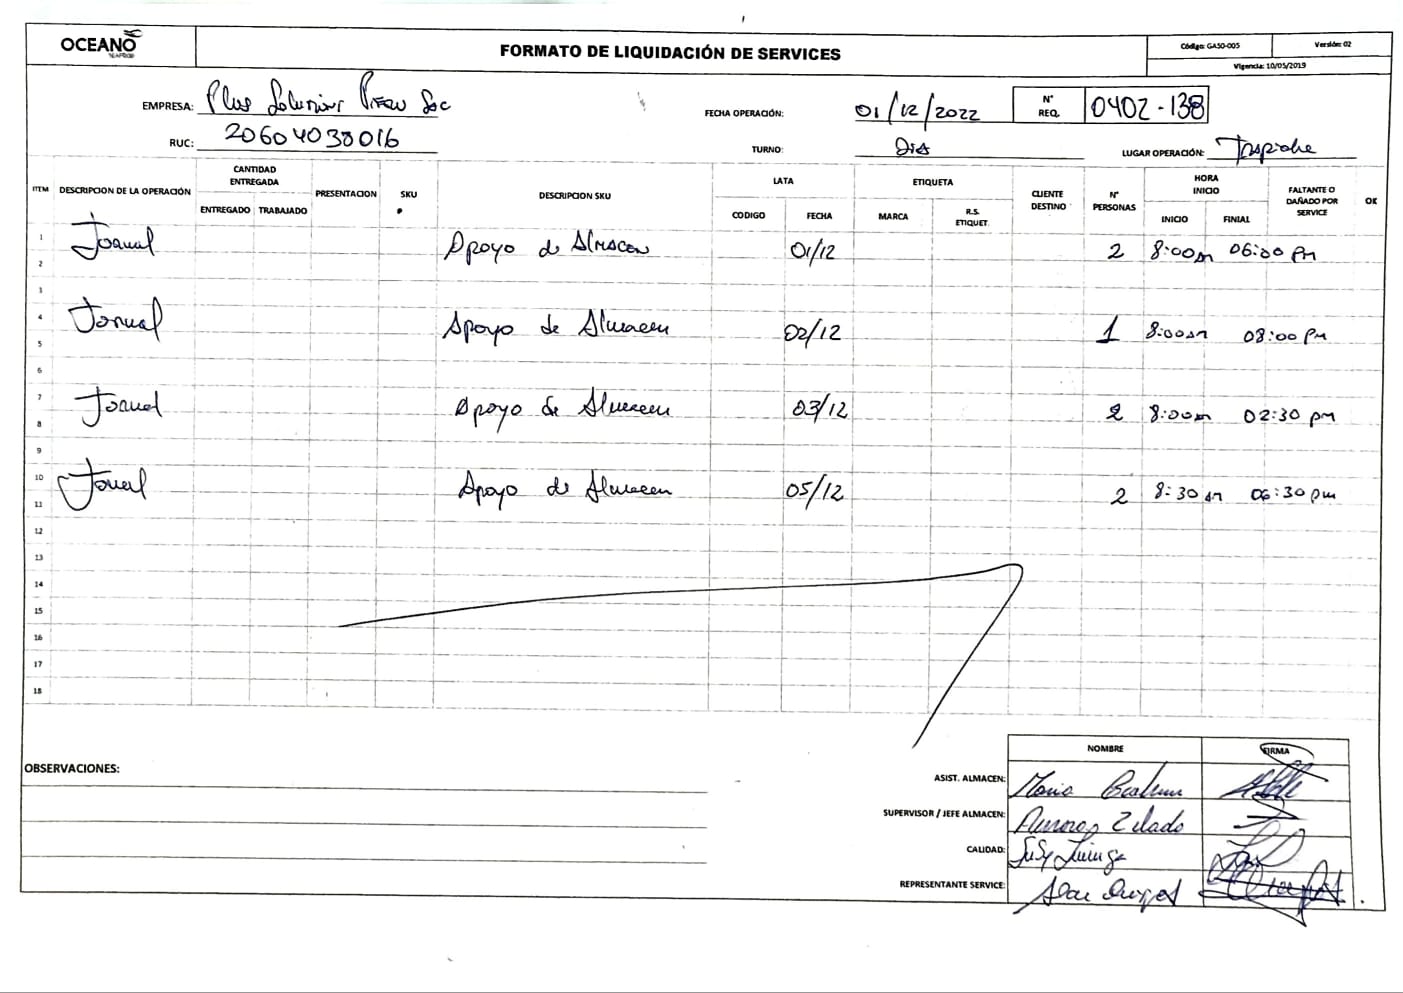 OCEANO
SEAFOOD
FORMATO DE LIQUIDACIÓN DE SERVICES
Código: GASO-005
Versión: 02
Vigencia: 10/05/2019
EMPRESA: Plus Soluciones
FECHA OPERACIÓN: 01/12/2022
N° REQ. 0402-138
RUC: 20604038016
TURNO: Dia
LUGAR OPERACIÓN:
ITEM DESCRIPCION DE LA OPERACIÓN CANTIDAD ENTREGADA PRESENTACION SKU DESCRIPCION SKU LATA ETIQUETA CLIENTE DESTINO N° PERSONAS HORA INICIO FALTANTE O DAÑADO POR SERVICE OK
ENTREGADO TRABAJADO CODIGO FECHA MARCA R.S. ETIQUET. INICIO FINIAL
1 Jornal Apoyo de Almacen 01/12 2 8:00am 06:00 PM
2
3
4 Jornal Apoyo de Almacen 02/12 1 8:00am 08:00 PM
5
6
7 Jornal Apoyo de Almacen 03/12 2 8:00am 02:30 pm
8
9
10 Jornal Apoyo de Almacen 05/12 2 8:30am 06:30 pm
11
12
13
14
15
16
17
18
NOMBRE FIRMA
OBSERVACIONES:
ASIST. ALMACEN: Maria
SUPERVISOR / JEFE ALMACEN: Zelado
CALIDAD: Susy
REPRESENTANTE SERVICE: